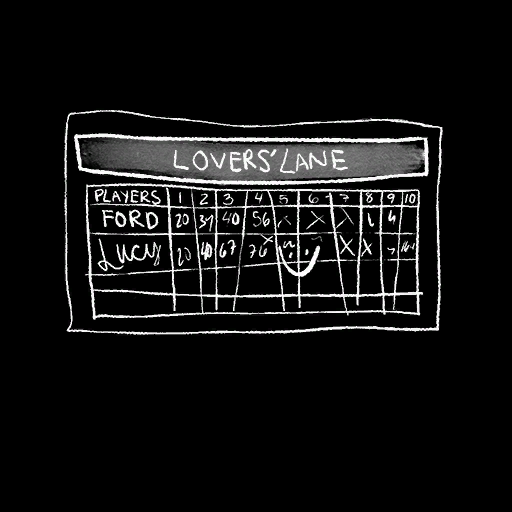 LOVERS' LANE
PLAYERS 1 2 3 4 5 6 7 8 9 10
FORD 20 37 40 56 X X
LUCY 20 40 67 76 X X